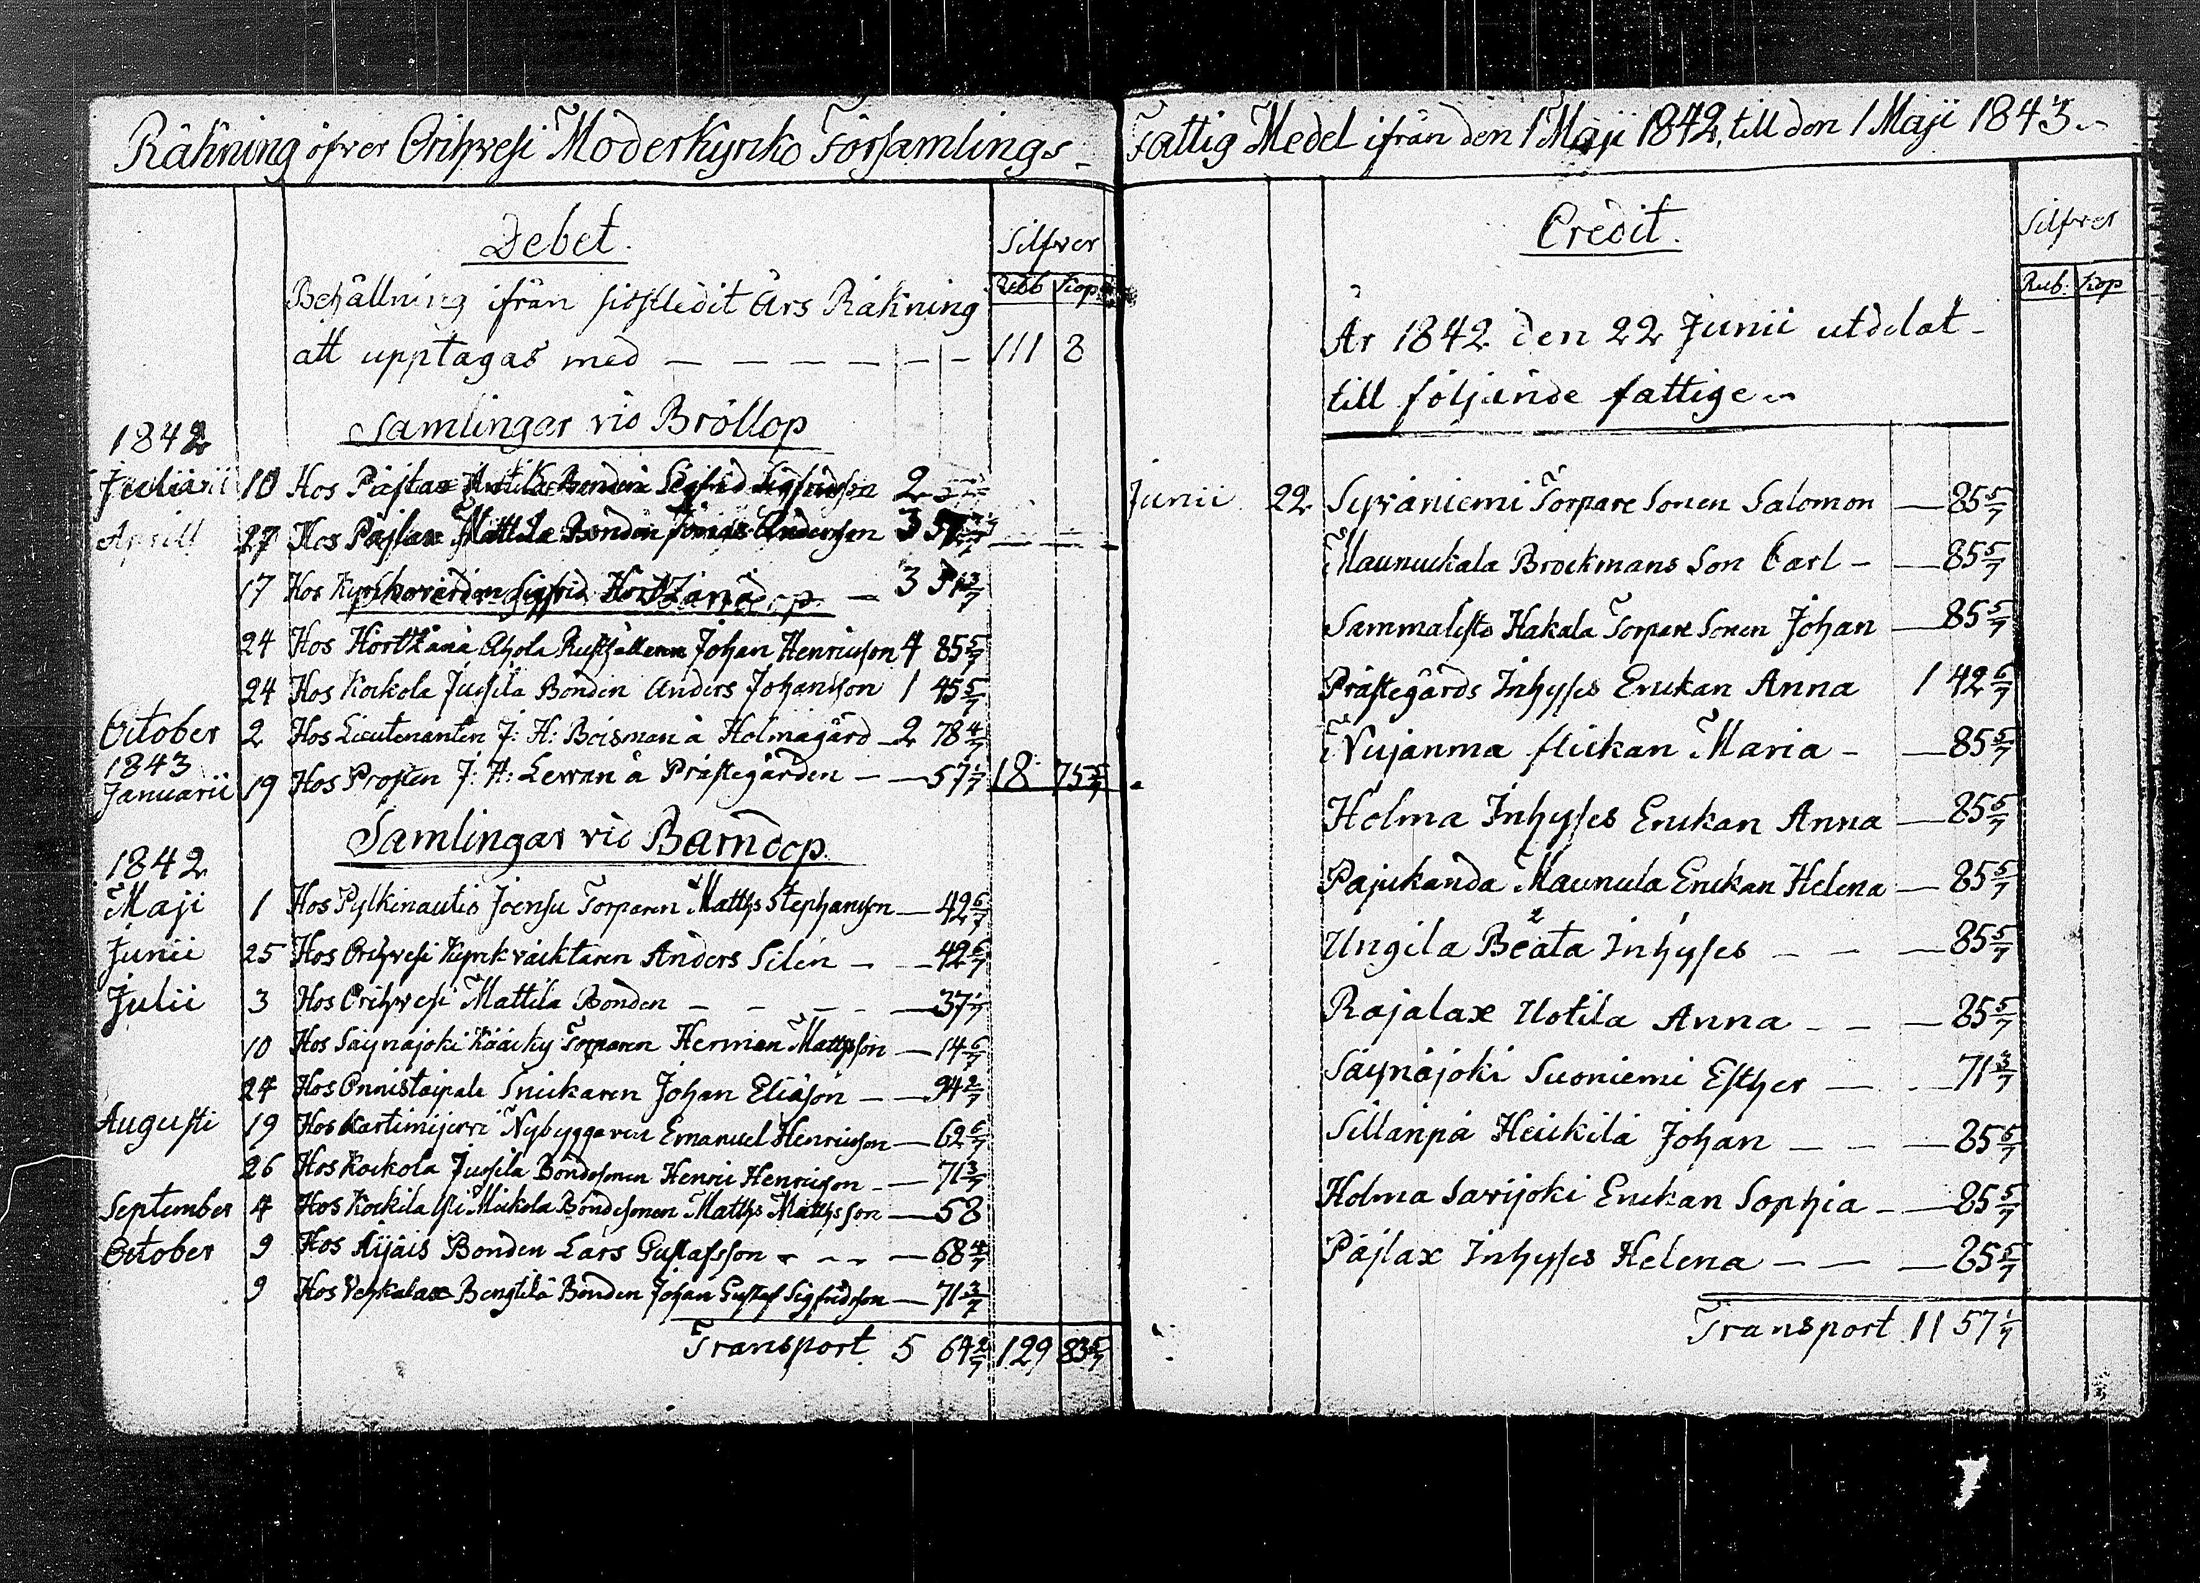 Räkning öfver Orihvesi Moderkyrko Församlings-
Debet.
Silfver
Rubb Kop
Behållning ifrån sistledit Års Räkning
att upptagas med — — — — — — 111 8
Samlingar vid Bröllop
1842
10 Hos 2
Aprill 27 Hos Pajlax Mattila Bonden Anderson 3 57
17 Hos 3 51 3/7
24 Hos Johan Henricsson 4 85 5/7
24 Hos Kockola Jussila Bonden Anders Johansson 1 45 5/7
October 2 Hos Lieutenanten J: H: Boisman å Holmagård — 2 78 4/7
1843
Januarii 19 Hos Prosten J: H: å Prästegården — — 57 1/7 18 75 5/7
Samlingar vid Barndop
1842
Maji 1 Hos Pylkinautio Joensu Torparen Matths Stephansson — 42 6/7
Junii 25 Hos Orihvesi Kyrkväcktaren Anders Silén — — 42 6/7
Julii 3 Hos Orihvesi Mattila Bonden — — — — — 37 1/7
10 Hos Säynäjoki Torparen Herman Mattsson — 14 6/7
24 Hos Onnistaipale Snickaren Johan Eliasson — — 94 2/7
Augusti 19 Hos Nybyggaren Emanuel Henricsson — 62 6/7
26 Hos Kockola Jussila Bondesonen Henric Henricsson — 71 3/7
September 4 Hos Bondesonen Matths Mathsson — 58
October 9 Hos Äijäis Bonden Lars Gustafsson — — — 68 4/7
9 Hos Vehkalax Bengtilä Bonden Johan Gustaf Sigfridsson — 71 3/7
Transport 5 64 2/7 129 83 5/7
Fattig Medel ifrån den 1 Maji 1842, till den 1 Maji 1843.
Credit.
Silfver
Rub: Kop
År 1842 den 22 Junii utdelat
till följande fattige
Junii 22 Syväniemi Torpare Sonen Salomon — 85 5/7
Maunuckala Brockmans Son Carl — — 85 5/7
Sammalisto Hakala Torpare Sonen Johan — 85 5/7
Prästegårds Inhyses Enckan Anna 1 42 6/7
Vujanma flickan Maria — — 85 5/7
Holma Inhyses Enckan Anna — 85 5/7
Pajukanda Maunula Enckan Helena — 85 5/7
Ungila Beata Inhyses — — — 85 5/7
Rajalax Uotila Anna — — — 85 5/7
Säynäjoki Suoniemi Esther — — 71 3/7
Sillanpä Heickilä Johan — — — 85 5/7
Holma Savijoki Enckan Sophia — — 85 5/7
Päjlax Inhyses Helena — — — 85 5/7
Transport 11 57 1/7